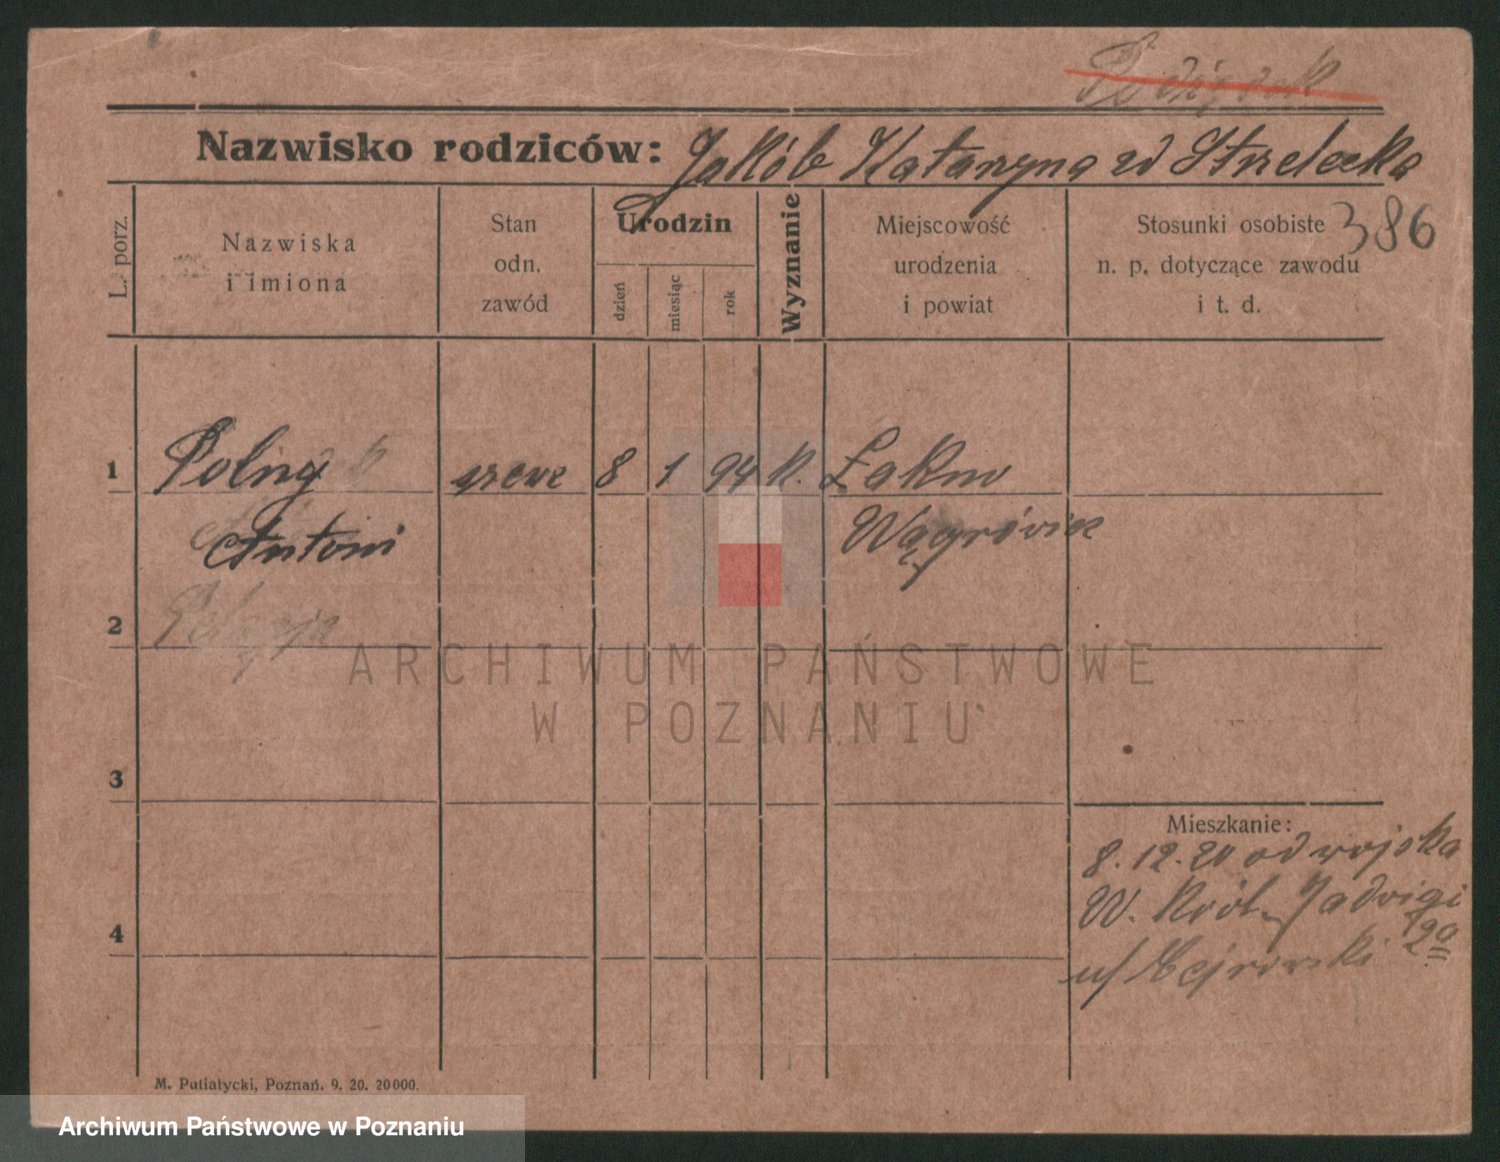 Nazwisko rodziców: Jakób Katarzyna zd Strzelecka
386
L. porz.
Nazwiska
i imiona
Stan
odn.
zawód
Urodzin
dzień
miesiąc
rok
Wyznanie
Miejscowość
urodzenia
i powiat
Stosunki osobiste
n. p. dotyczące zawodu
i t. d.
1
Poling
8
1
94
k.
Łekno
Antoni
Wągrówiec
2
Pelagja
ARCHIWUM PAŃSTWOWE
W POZNANIU
3
Mieszkanie:
8.12.20 od wojska
W. Król. Jadwigi
20
4
u/ Cejrowski
M. Putiatycki, Poznań. 9. 20. 20000.
Archiwum Państwowe w Poznaniu